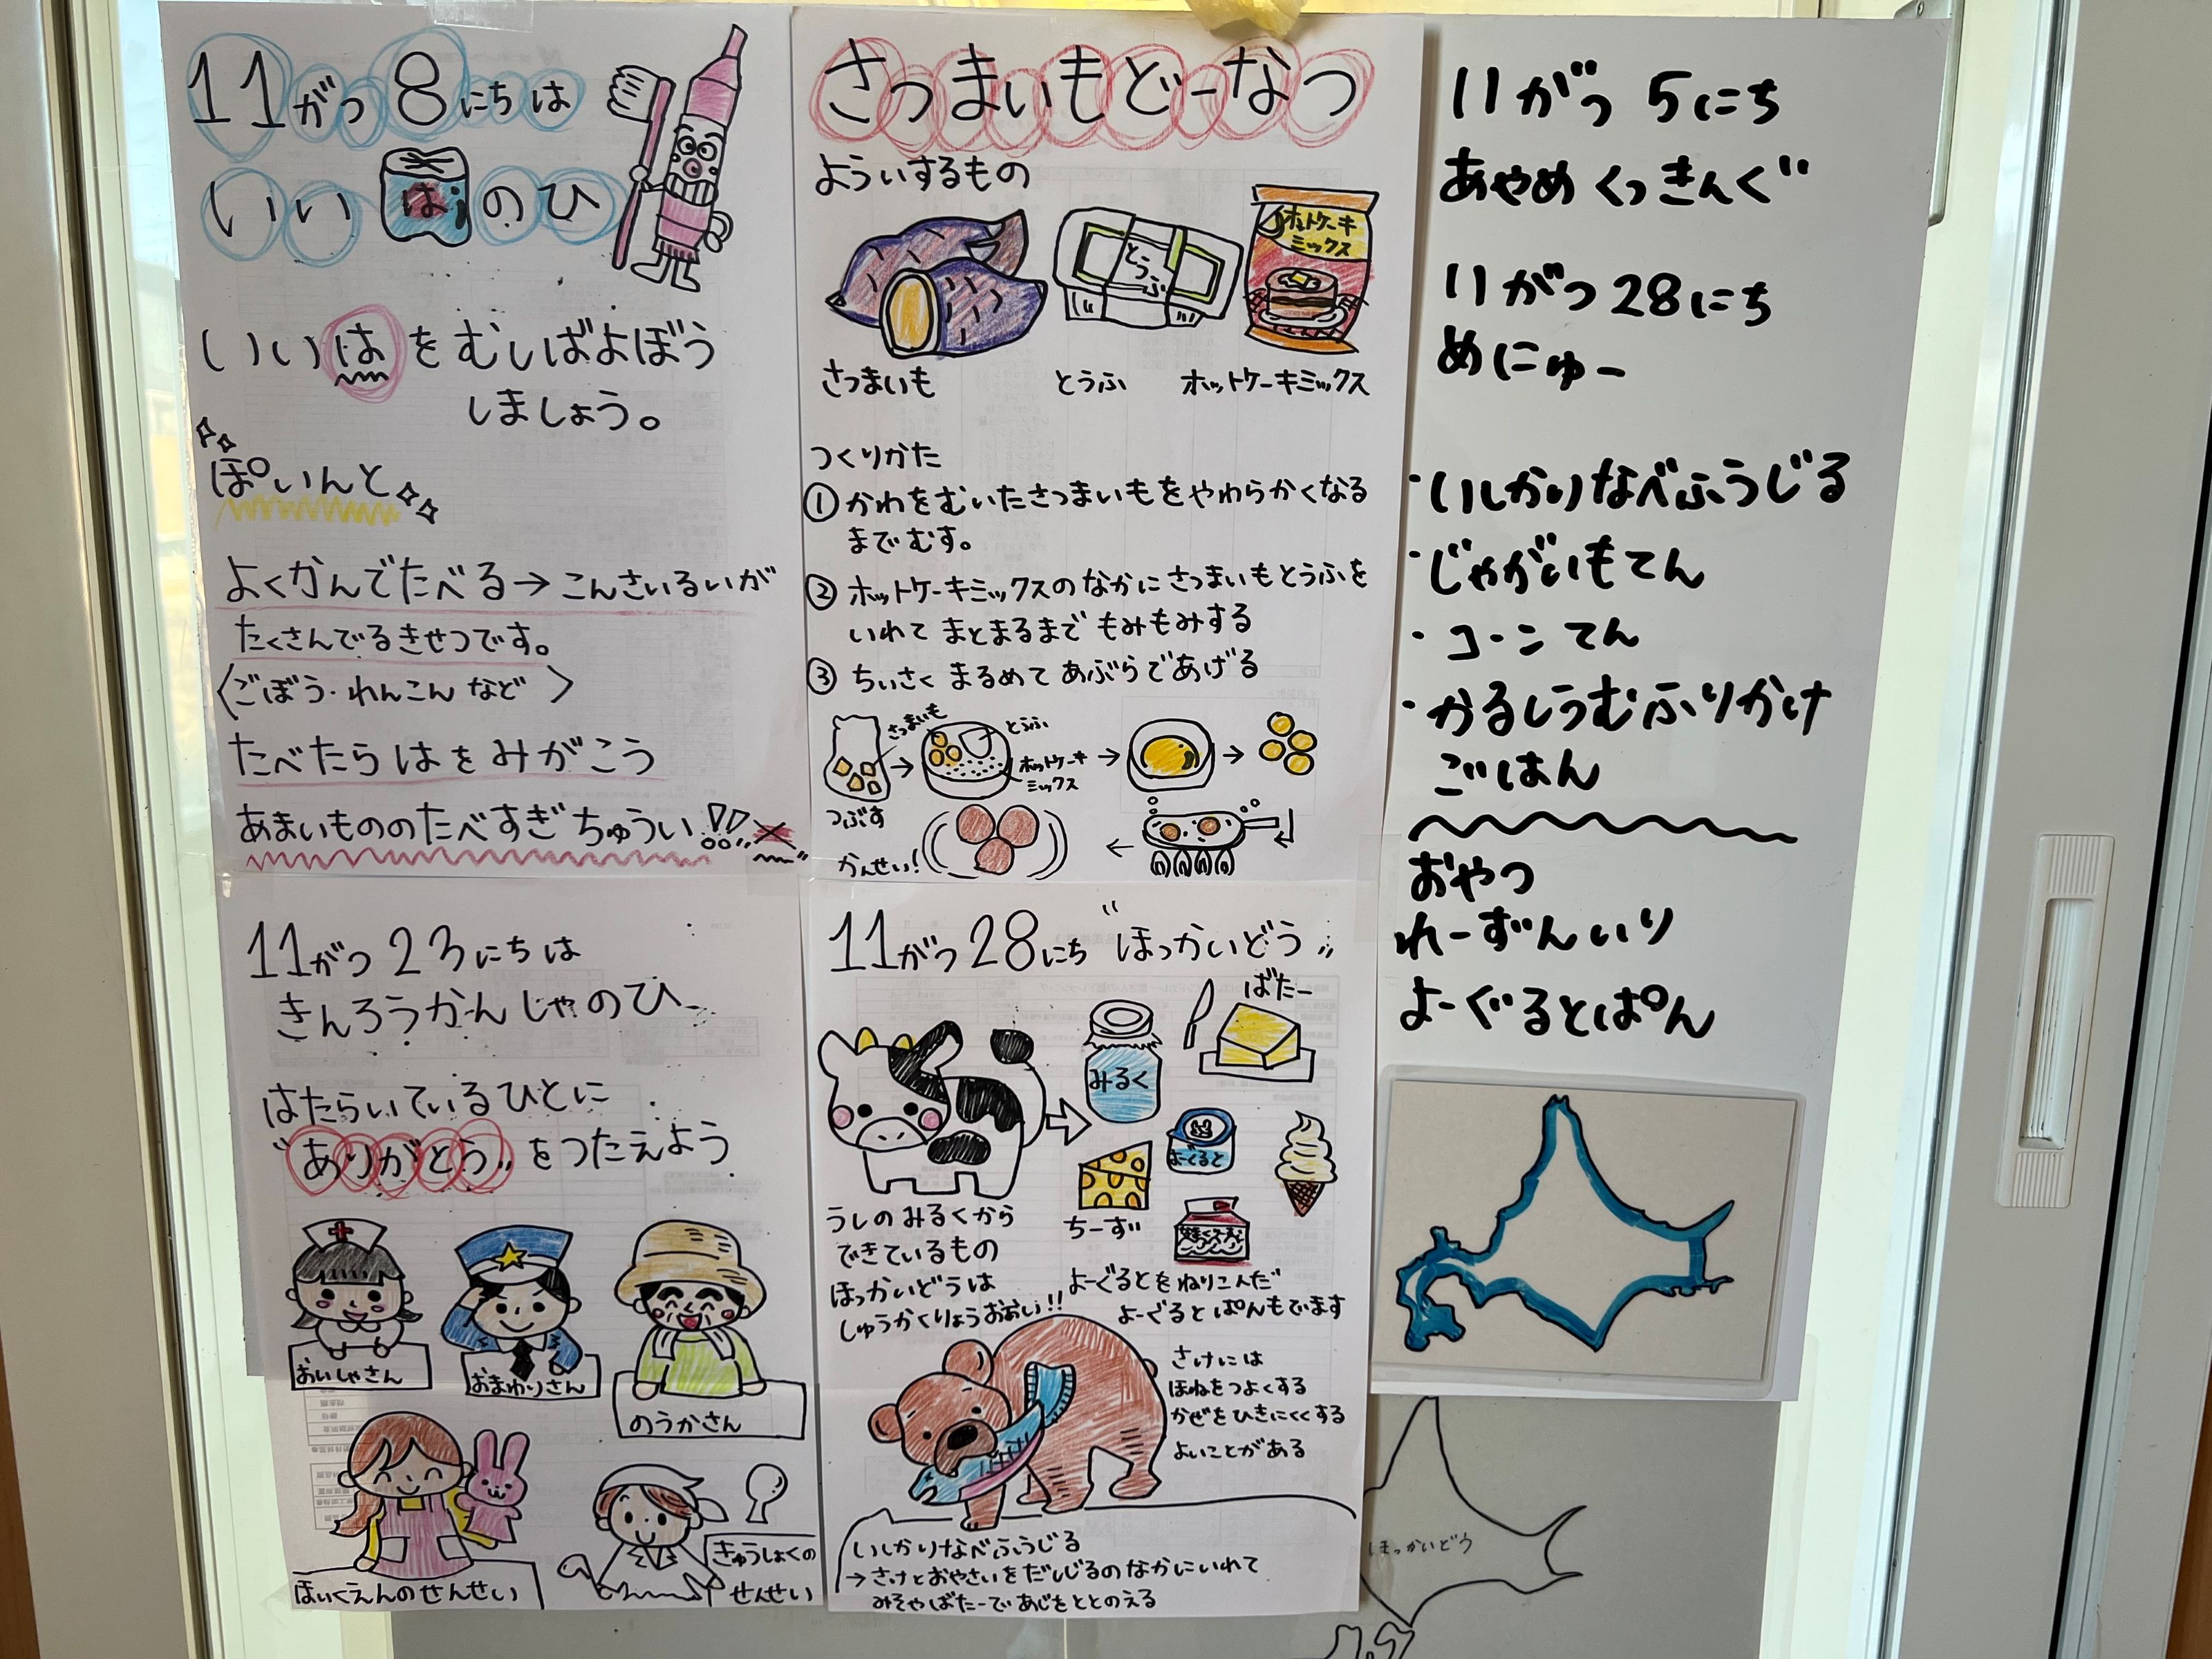 11がつ8にちは
いいはのひ
いいはをむしばよぼう
しましょう。
ぽいんと
よくかんでたべる→こんさいるいが
たくさんでるきせつです。
〈ごぼう・れんこんなど〉
たべたらはをみがこう
あまいもののたべすぎちゅうい!!
さつまいもどーなつ
よういするもの
とうふ
ホットケーキ
ミックス
さつまいも とうふ ホットケーキミックス
つくりかた
①かわをむいたさつまいもをやわらかくなる
までむす。
②ホットケーキミックスのなかにさつまいもとうふを
いれてまとまるまでもみもみする
③ちいさくまるめてあぶらであげる
さつまいも
とうふ
ホットケーキ
ミックス
つぶす
かんせい!
11がつ23にちは
きんろうかんしゃのひ
はたらいているひとに
"ありがとう"をつたえよう
おいしゃさん
おまわりさん
のうかさん
ほいくえんのせんせい
きゅうしょくの
せんせい
11がつ28にち"ほっかいどう"
ばたー
みるく
よーぐると
ちーず
うしのみるくから
できているもの
ほっかいどうは
しゅうかくりょうおおい!!
よーぐるとをねりこんだ
よーぐるとぱんもでます
さけには
ほねをつよくする
かぜをひきにくくする
よいことがある
いしかりなべふうじる
→さけとおやさいをだしじるのなかにいれて
みそやばたーであじをととのえる
11がつ5にち
あやめくっきんぐ
11がつ28にち
めにゅー
・いしかりなべふうじる
・じゃがいもてん
・コーンてん
・かるしうむふりかけ
ごはん
おやつ
れーずんいり
よーぐるとぱん
ほっかいどう